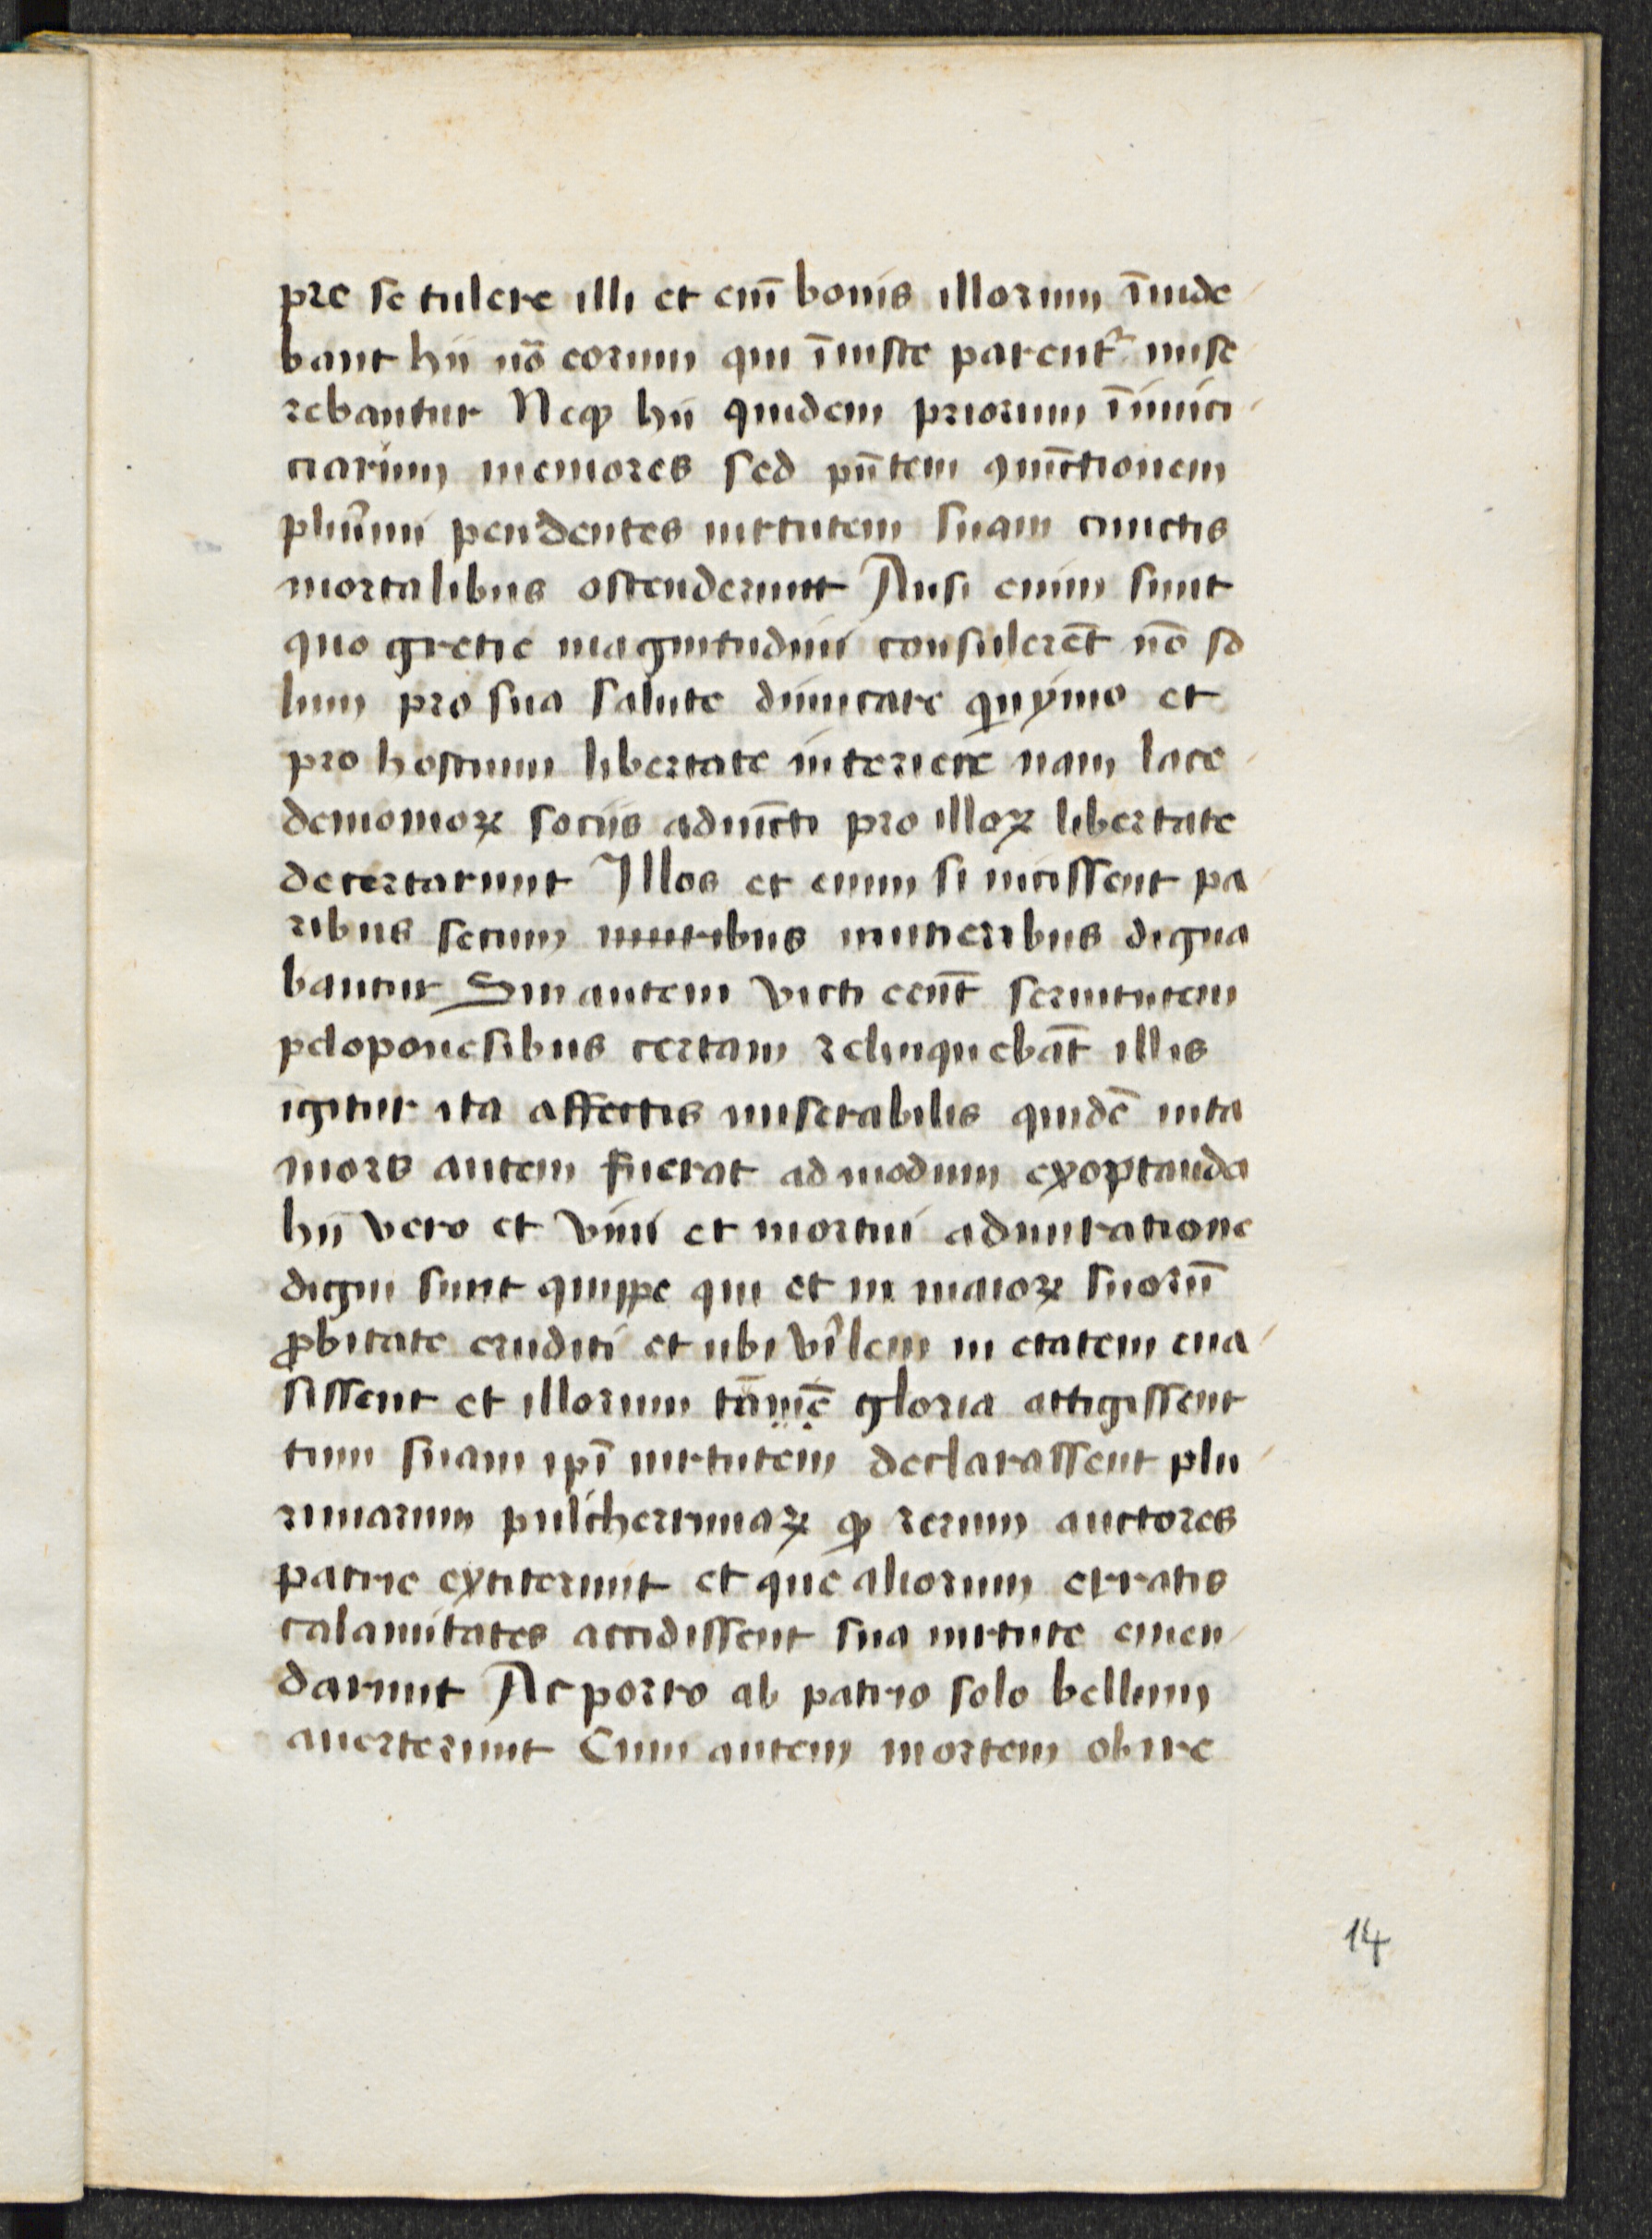 pre se tulere illi et em̄ bonis illorum īuide
bant hii nō eorum qui īiuste parent᷑ mise
rebantur Neqꝫ hii quidem priorum īimici
ciarum memores sed pn̄tem ꝯiūctionem
plurīmi pendentes uirtutem suam cunctis
mortalibus ostenderunt Ausi enim sunt
quo gretie magnitudini consulerēt nō so
lum pro sua salute dimicare quȳmo et
pro hostium libertate interiere nam lace
demonioꝝ sociis adiūcti pro illoꝝ libertate
decertarunt Illos et enim si uicissent pa
ribus secum muribus muneribus digna
bantur Sin autem victi eēnt seruitutem
peloponesibus certam relinquebāt illis
igitur ita affectis miserabilis quidē uita
mors autem fuerat admodum exoptanda
hii vero et viui et mortui admiratione
digni sunt quippe qui et in maioꝝ suorū
ꝓbitate eruditi et ubi vilem in etatem eua
sissent et illorum tamē gloria attigissent
tum suam ipī uirtutem declarassent plu
rimarum pulcherrimaꝝ qꝫ rerum auctores
patrie extiterunt et que aliorum erratis
calamitates accidissent sua uirtute emen
darunt Ac porro ab patrio solo bellum
auerterunt Cum autem mortem obire
14